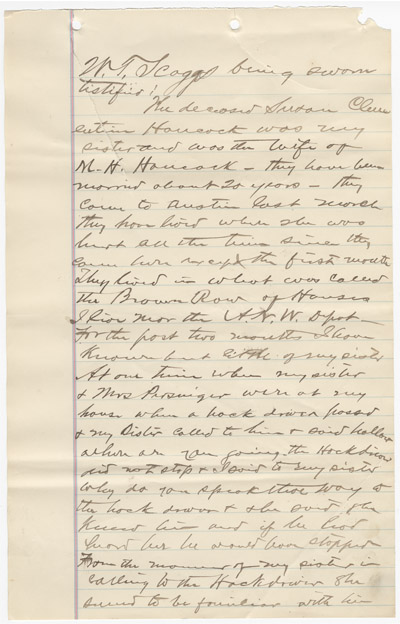 W. T. Scaggs being sworn
testifies:
The deceased Susan Clem
entine Hancock was my
sister and was the wife of
M. H. Hancock – they have been
married about 20 years – they
came to Austin last march
they have lived where she was
hurt all the time since they
came here except the first month
They lived in what was called
the Brown Row of Houses
I live near the A. N. W. Depot –
For the past two months I have
known but little of my sister
At one time when my sister
& Mrs Persinger were at my
house when a hack driver passed
& my sister called to him & said hallow
where are you going, the Hack driver
did not stop & I said to my sister
why do you speak that way to
the hack driver & she said she
knew him and if he had
heard her he would have stopped
From the manner of my sister in
calling to the Hack driver she
seemed to be familiar with him